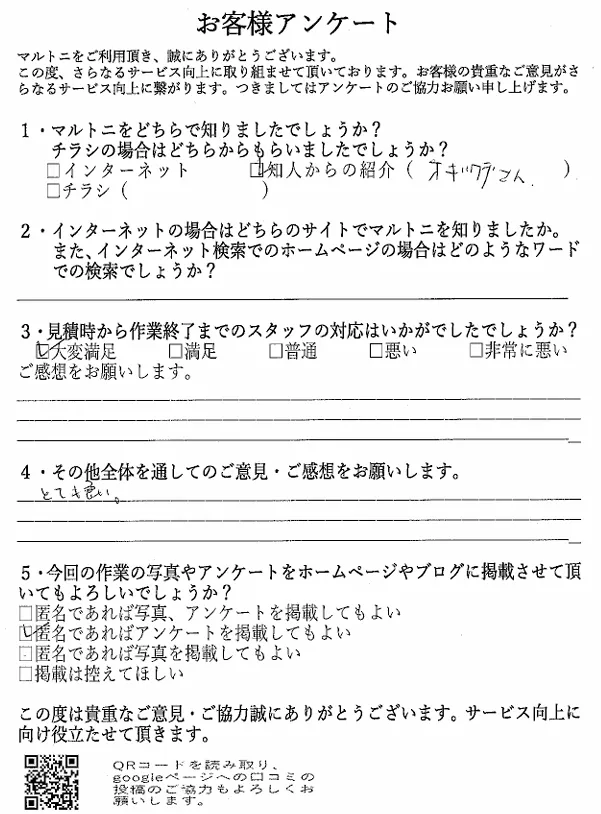 お客様アンケート
マルトニをご利用頂き、誠にありがとうございます。
この度、さらなるサービス向上に取り組ませて頂いております。お客様の貴重なご意見がさ
らなるサービス向上に繋がります。つきましてはアンケートのご協力お願い申し上げます。
1・マルトニをどちらで知りましたでしょうか？
チラシの場合はどちらからもらいましたでしょうか？
□インターネット ☑知人からの紹介（ さん ）
□チラシ（ ）
2・インターネットの場合はどちらのサイトでマルトニを知りましたか。
また、インターネット検索でのホームページの場合はどのようなワード
での検索でしょうか？
3・見積時から作業終了までのスタッフの対応はいかがでしたでしょうか？
☑大変満足 □満足 □普通 □悪い □非常に悪い
ご感想をお願いします。
4・その他全体を通してのご意見・ご感想をお願いします。
とても良い。
5・今回の作業の写真やアンケートをホームページやブログに掲載させて頂
いてもよろしいでしょうか？
□匿名であれば写真、アンケートを掲載してもよい
☑匿名であればアンケートを掲載してもよい
□匿名であれば写真を掲載してもよい
□掲載は控えてほしい
この度は貴重なご意見・ご協力誠にありがとうございます。サービス向上に
向け役立たせて頂きます。
QRコードを読み取り、
googleページへの口コミの
投稿のご協力もよろしくお
願いします。